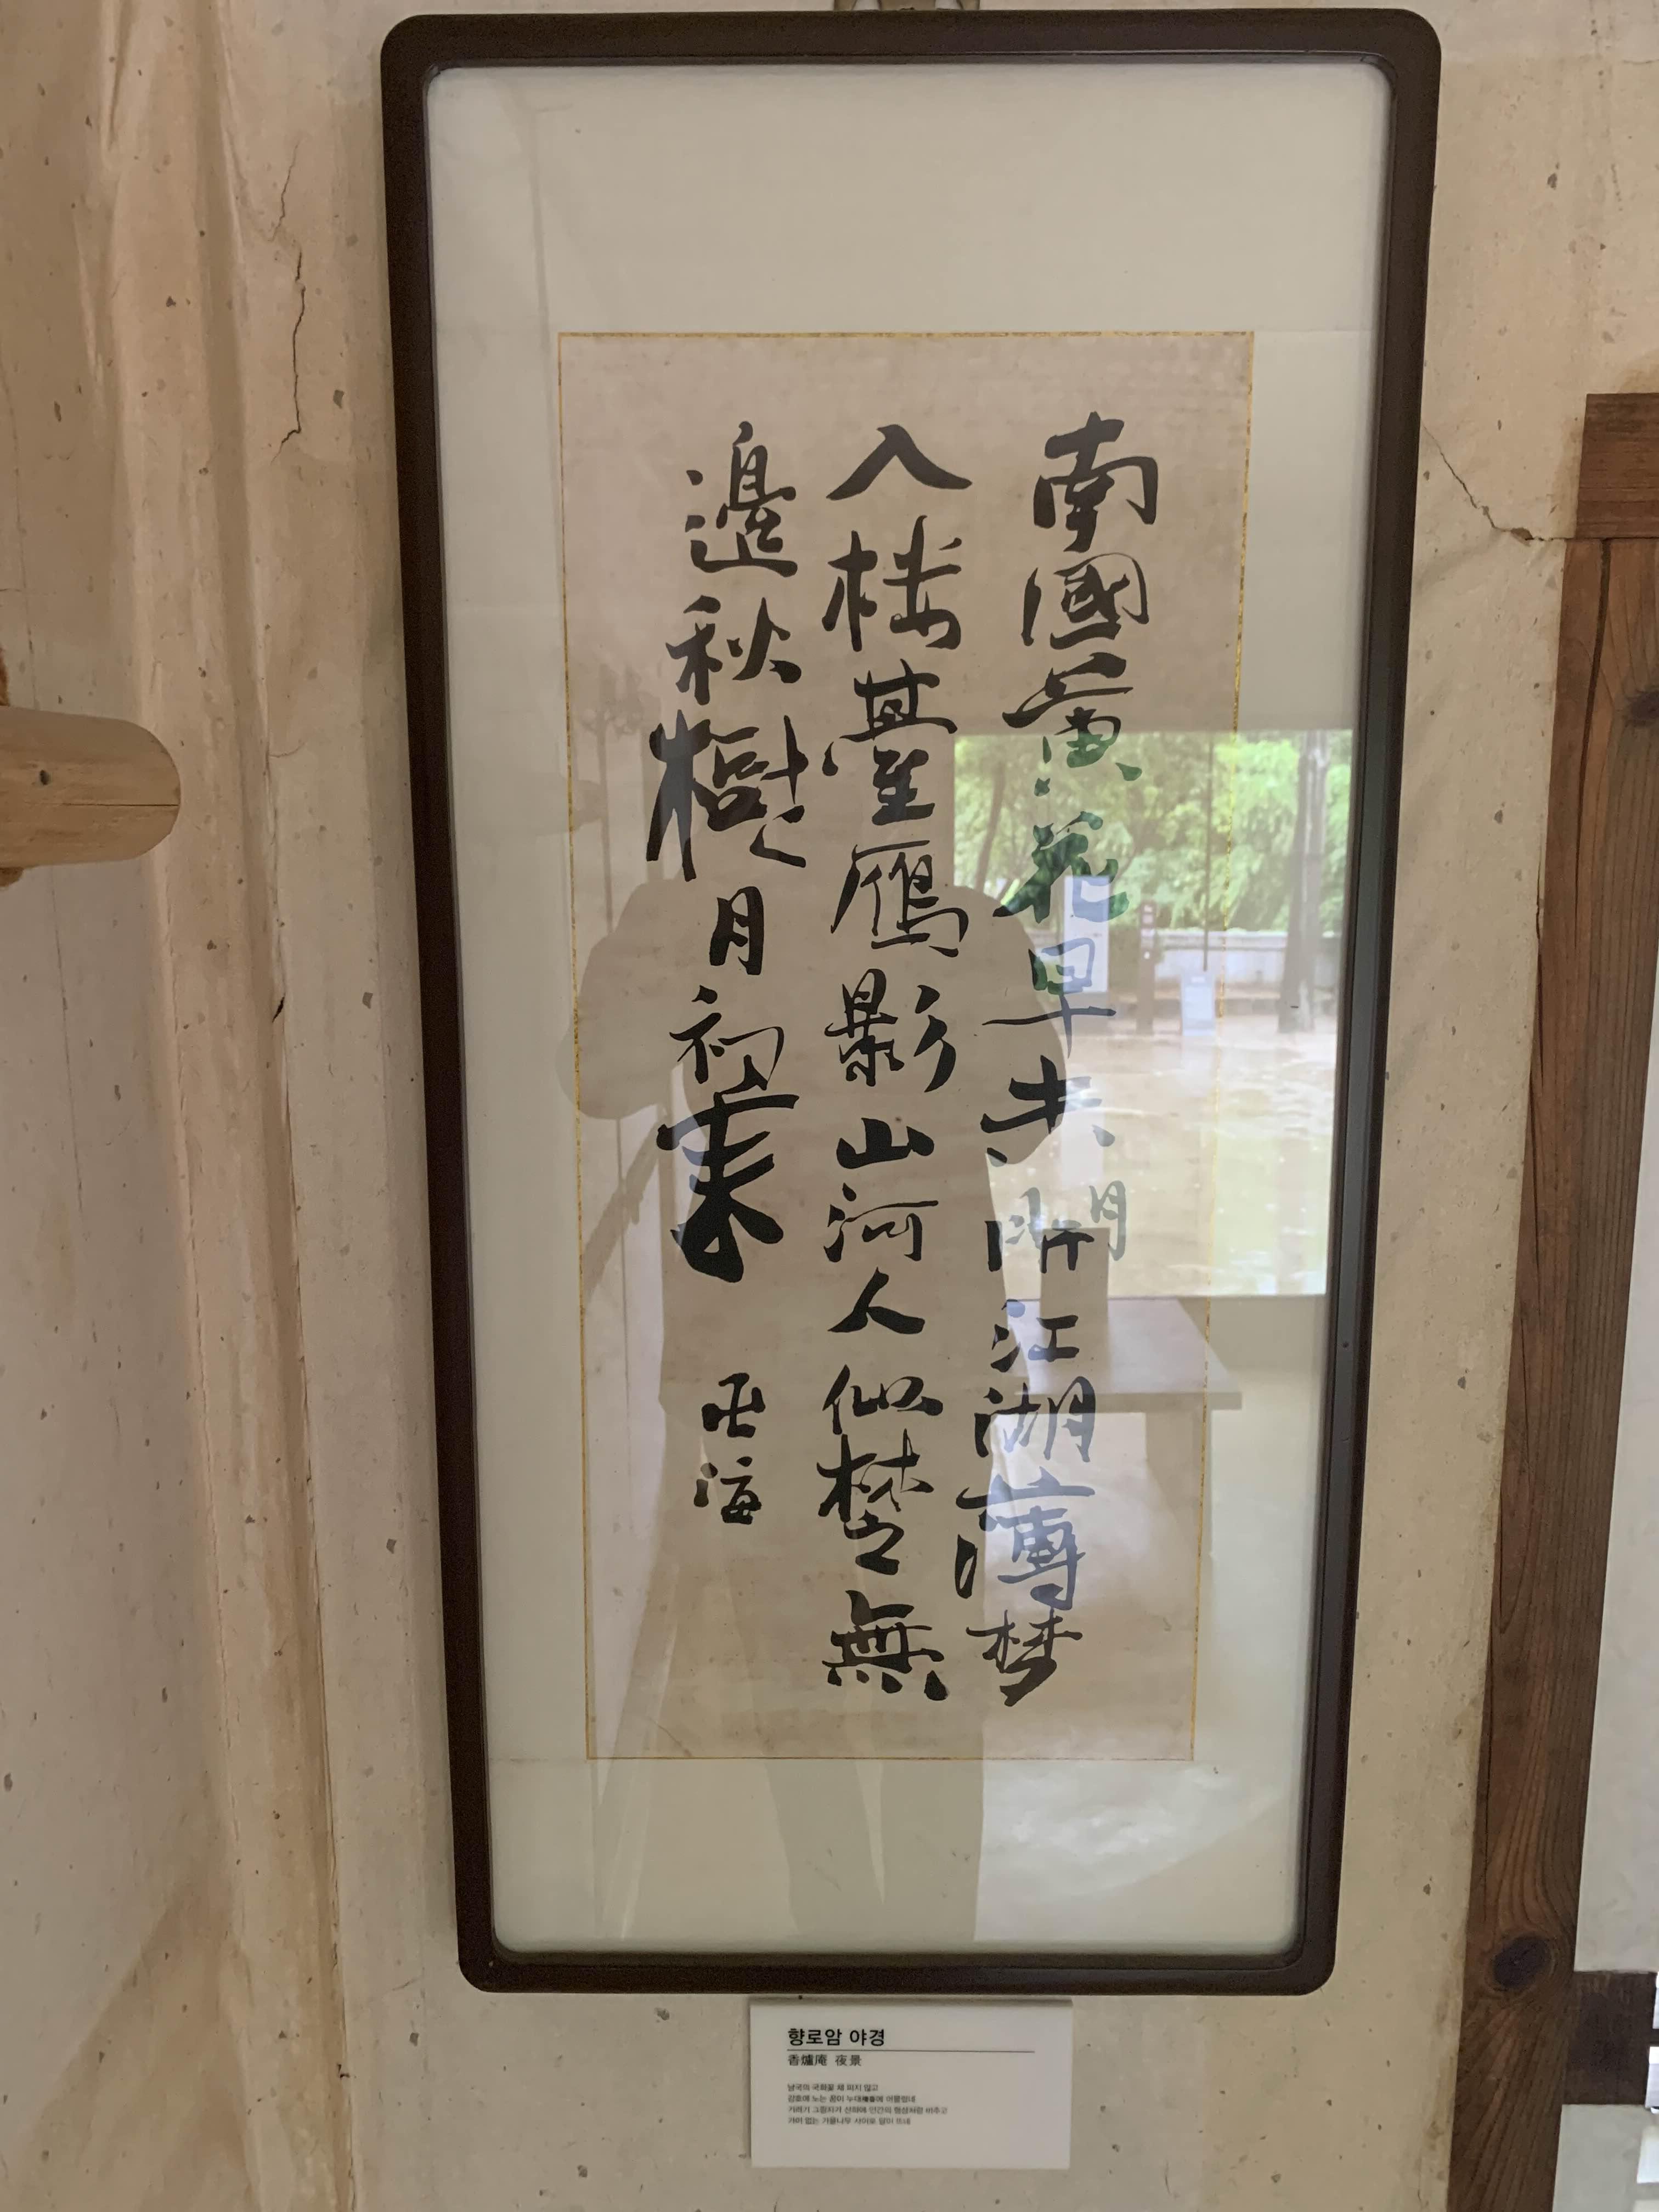 南國黃花早未開江湖薄梦
入楼臺鴈影山河人似楚無
邊秋樹月初来
卍海
향로암 야경
香爐庵 夜景
남국의 국화꽃 채 피지 않고
강호에 노는 꿈이 누대樓臺에 머물렀네
기러기 그림자가 산하에 인간의 형상처럼 비추고
가이 없는 가을나무 사이로 달이 뜨네